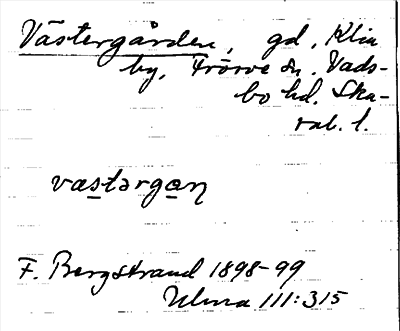 Västergården, gd, Klia
by, Trörve sn. Vads-
bo hd. Ska-
rab. l.
vastərgan
F. Bergstrand 1898-99
Ulma 111:315